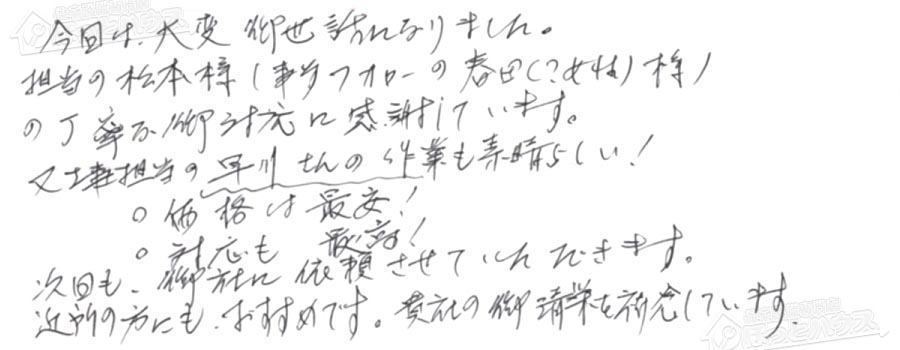 今回は、大変御世話になりました。
担当の松本様(事务フォローの春田(?女性)様)
の丁寧な御対応に感謝しています。
又工事担当の早川さんの作業も素晴らしい!
○価格は最安!
○対応も最高!
次回も、御社に依頼させていただきます。
近所の方にも、おすすめです。貴社の御清栄を祈念しています。